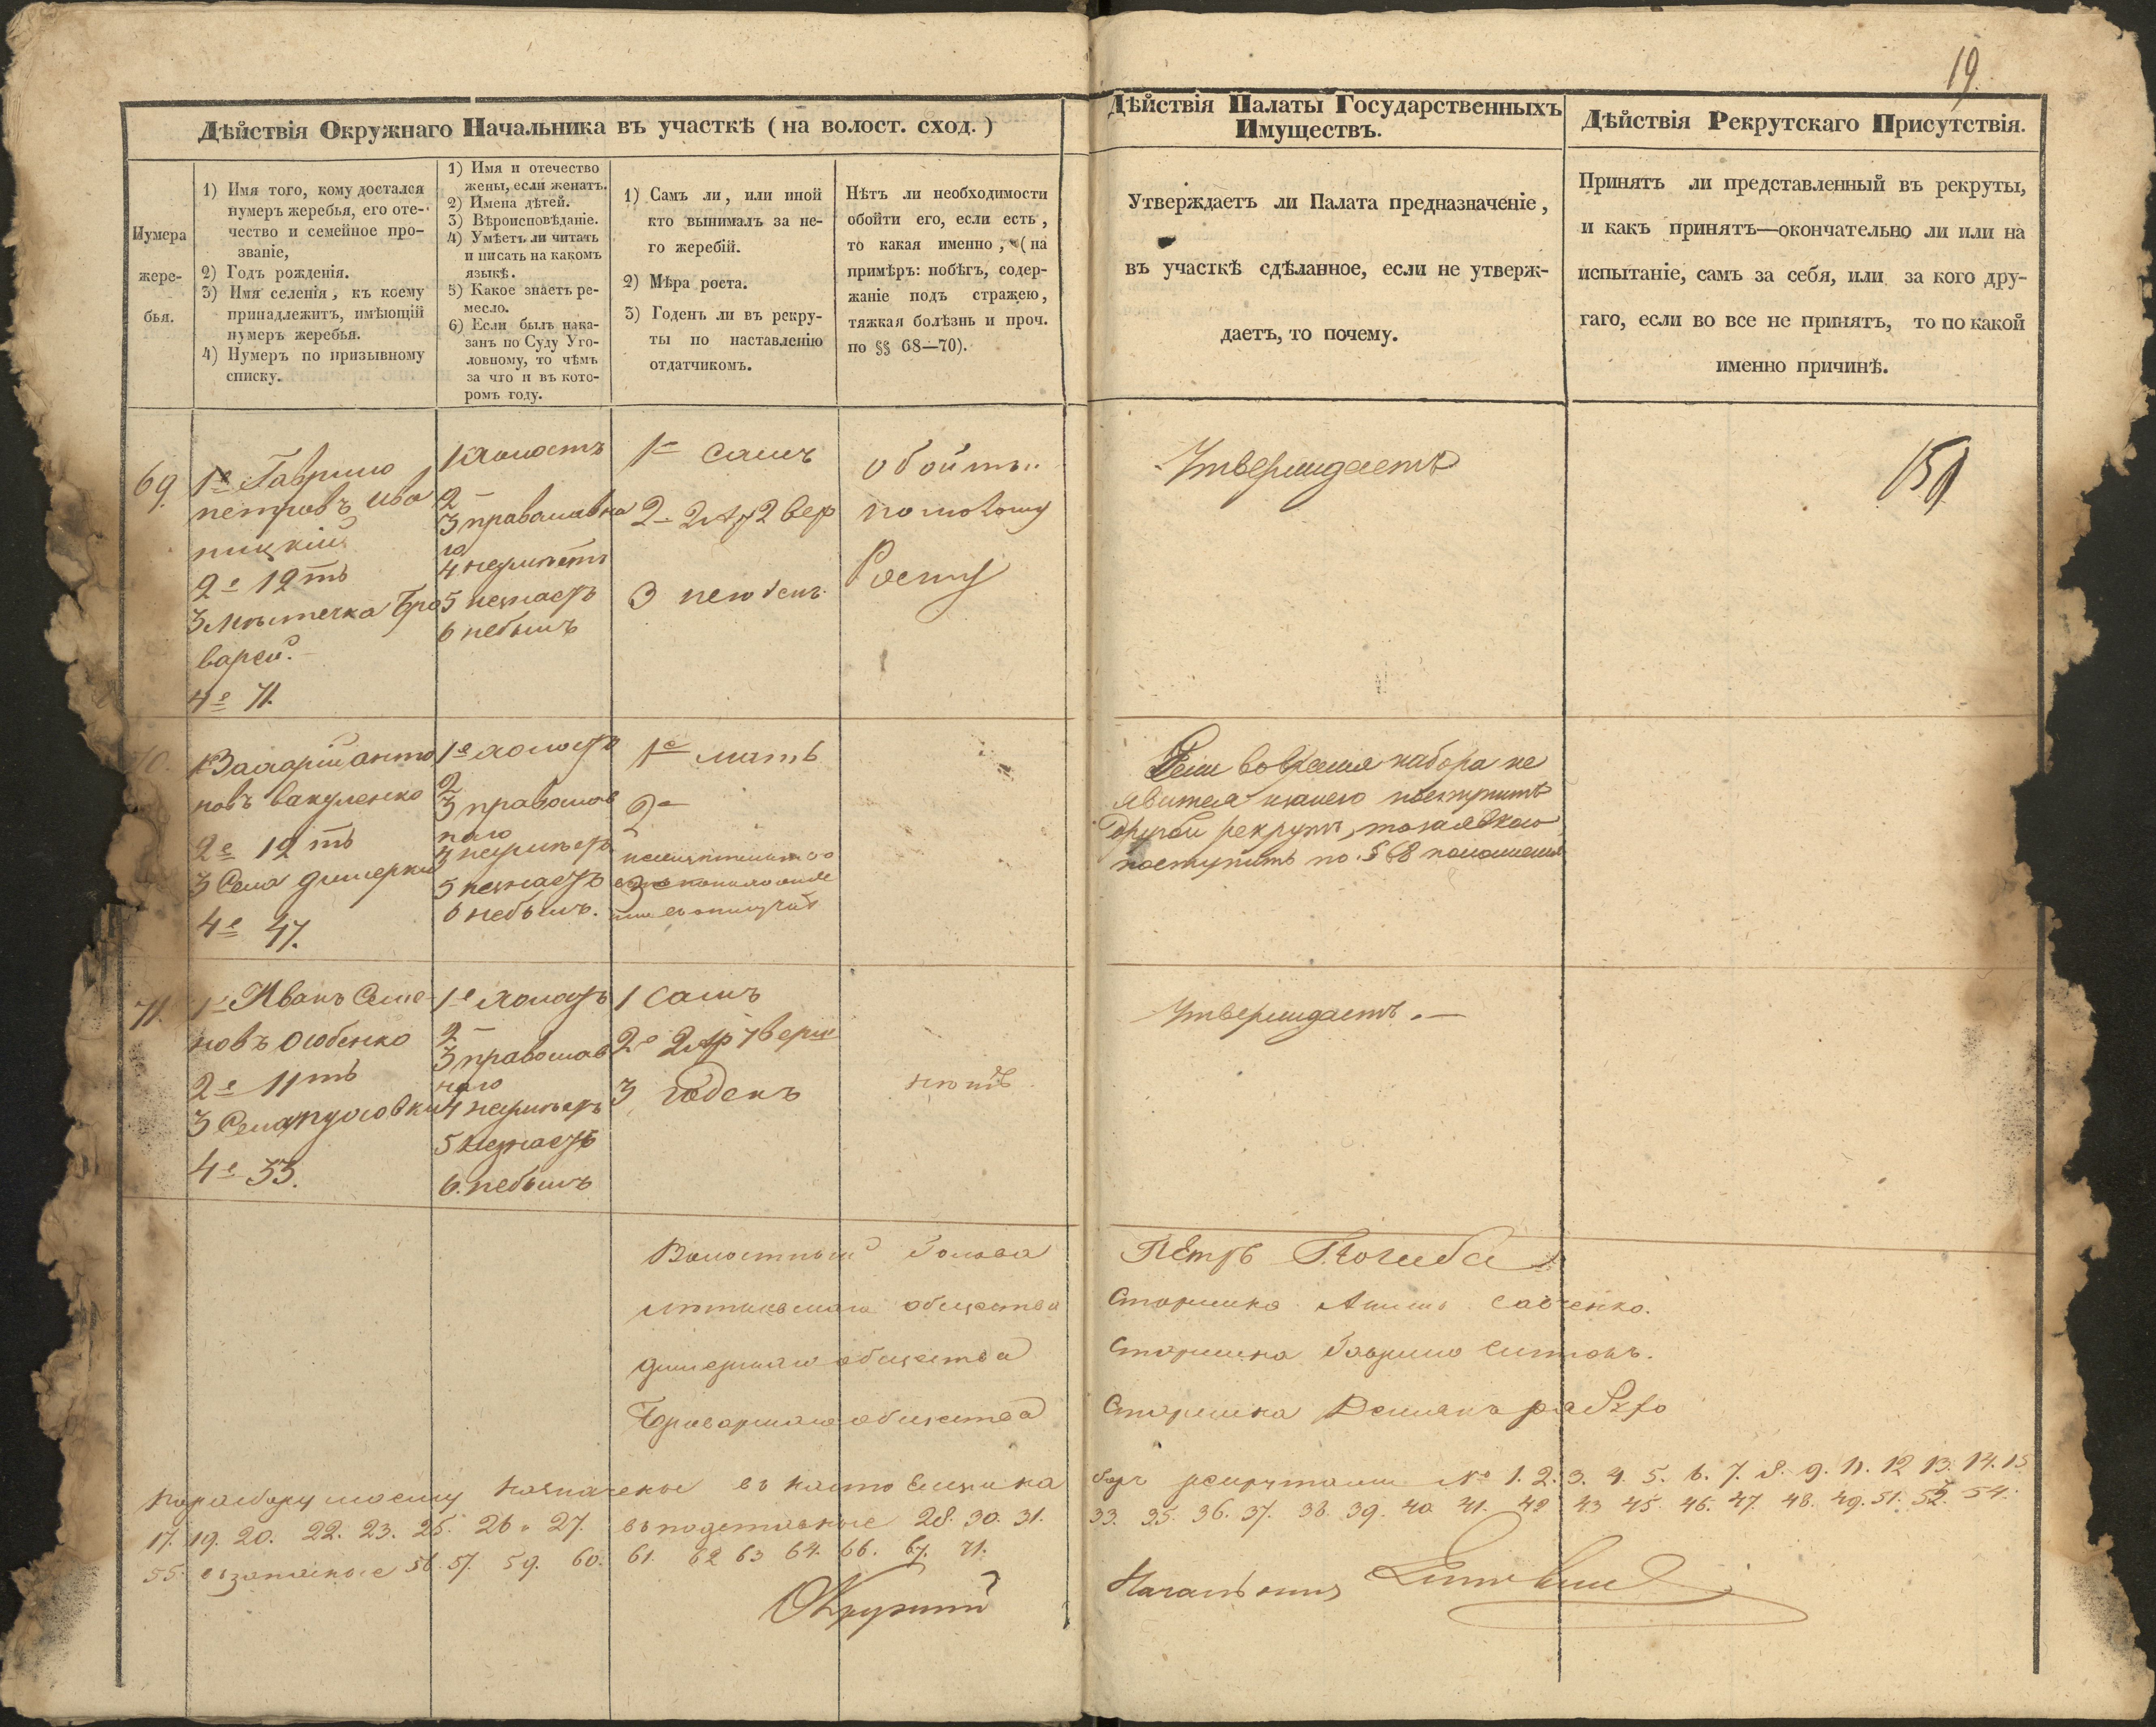 19.
Дѣйствія Окружнаго Начальника въ участкѣ (на волост. сход.)
Дѣйствія Палаты Государственныхъ
Имуществъ.
Дѣйствія Рекрутскаго Присутствія.
Нумера
жере-
бья.
1) Имя того, кому достался
нумеръ жеребья, его оте-
чество и семейное про-
званіе,
2) Годъ рожденія.
3) Имя селенія, къ коему
принадлежитъ, имѣющій
нумеръ жеребья.
4) Нумеръ по призывному
списку.
1) Имя и отечество
жены, если женатъ.
2) Имена дѣтей.
3) Вѣроисповѣданіе.
4) Умѣетъ ли читать
и писать на какомъ
языкѣ.
5) Какое знаетъ ре-
месло.
6) Если былъ нака-
занъ по Суду Уго-
ловному, то чѣмъ
за что и въ кото-
ромъ году.
1) Самъ ли, или иной
кто вынималъ за не-
го жеребій.
2) Мѣра роста.
3) Годенъ ли въ рекру-
ты по наставленію
отдатчикомъ.
Нѣтъ ли необходимости
обойти его, если есть,
то какая именно, (на
примѣръ: побѣгъ, содер-
жаніе подъ стражею,
тяжкая болѣзнь и проч.
по §§ 68—70).
Утверждаетъ ли Палата предназначеніе,
въ участкѣ сдѣланное, если не утверж-
даетъ, то почему.
Принятъ ли представленный въ рекруты,
и какъ принятъ—окончательно ли или на
испытаніе, самъ за себя, или за кого дру-
гаго, если во все не принятъ, то по какой
именно причинѣ.
69.
1е Гаврило
петровъ ива
ницкій
2е 12тъ
3 Мѣстечка Бро
варей.
4е 71.
1 холостъ
2 —
3 православна
го
4 неумѣетъ
5 незнаетъ
6 небылъ
1е самъ
2е 2 Ар 2 вер
3 негоденъ
обойти
по малому
Росту
Утверждаетъ
159
70.
1е Захарій анто
новъ вакуленко
2е 12тъ
3 Села димерки
4е 47.
1е холостъ
2
3 православ
наго
4 неумѣетъ
5 незнаетъ
6 небылъ.
1е мать
2е
3
Если во время набора не
явится и занего поступитъ
другой рекрутъ, то
поступить по § 68 положенія
71.
1е Иванъ Семе
новъ Особенко
2е 11тъ
3 Села пуховки
4е 33.
1е холостъ
2 —
3 православ
наго
4 неумѣетъ
5 незнаетъ
6. небылъ
1 Самъ
2е 2 Ар 7 верш
3 годенъ
нѣтъ
Утверждаетъ. —
Волостный Голова Петръ Погиба
общества Старшина Савченко.
димерскаго общества Старшина Гаврило
Броварскаго общества Старшина Демьянъ
по разбору моему назначены въ настоящій на
боръ рекрутами № 1. 2. 3. 4. 5. 6. 7. 8. 9. 11. 12 13. 14. 15
17. 19. 20. 22. 23. 25. 26 и 27. въ подставные 28. 30. 31.
33. 35. 36. 37. 38. 39. 40 41. 42 43 45. 46. 47. 48. 49. 51. 52. 54.
55. въ запасные 56. 57. 59. 60. 61. 62 63 64. 66. 67. 71.
Окружный Начальникъ